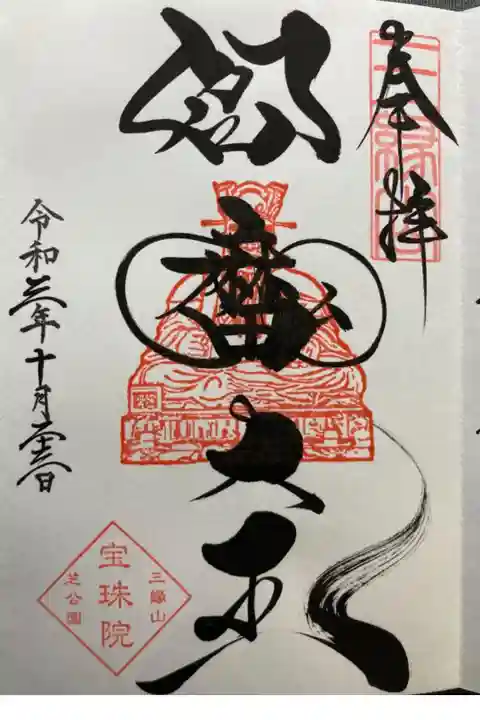 奉拝
三縁山
閻魔大王
令和三年十月
三縁山
宝珠院
芝公園